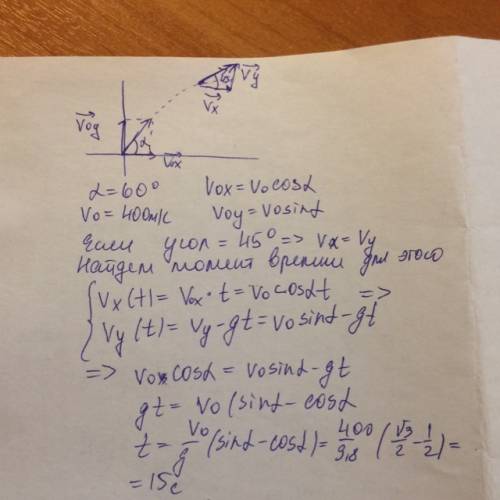 V⃗y
45°
V⃗x
V⃗oy
α
V⃗ox
α = 60° Vox = Vo cosα
Vo = 400 м/с Voy = Vo sinα
Если угол = 45° => Vx = Vy
Найдем момент времени для этого
{ Vx(t) = Vox · t = Vo cosαt =>
Vy(t) = Vy - gt = Vo sinα - gt
=> Vo cosα = Vo sinα - gt
gt = Vo (sinα - cosα
t = Vo/g (sinα - cosα) = 400/9,8 (√3/2 - 1/2) =
= 15с